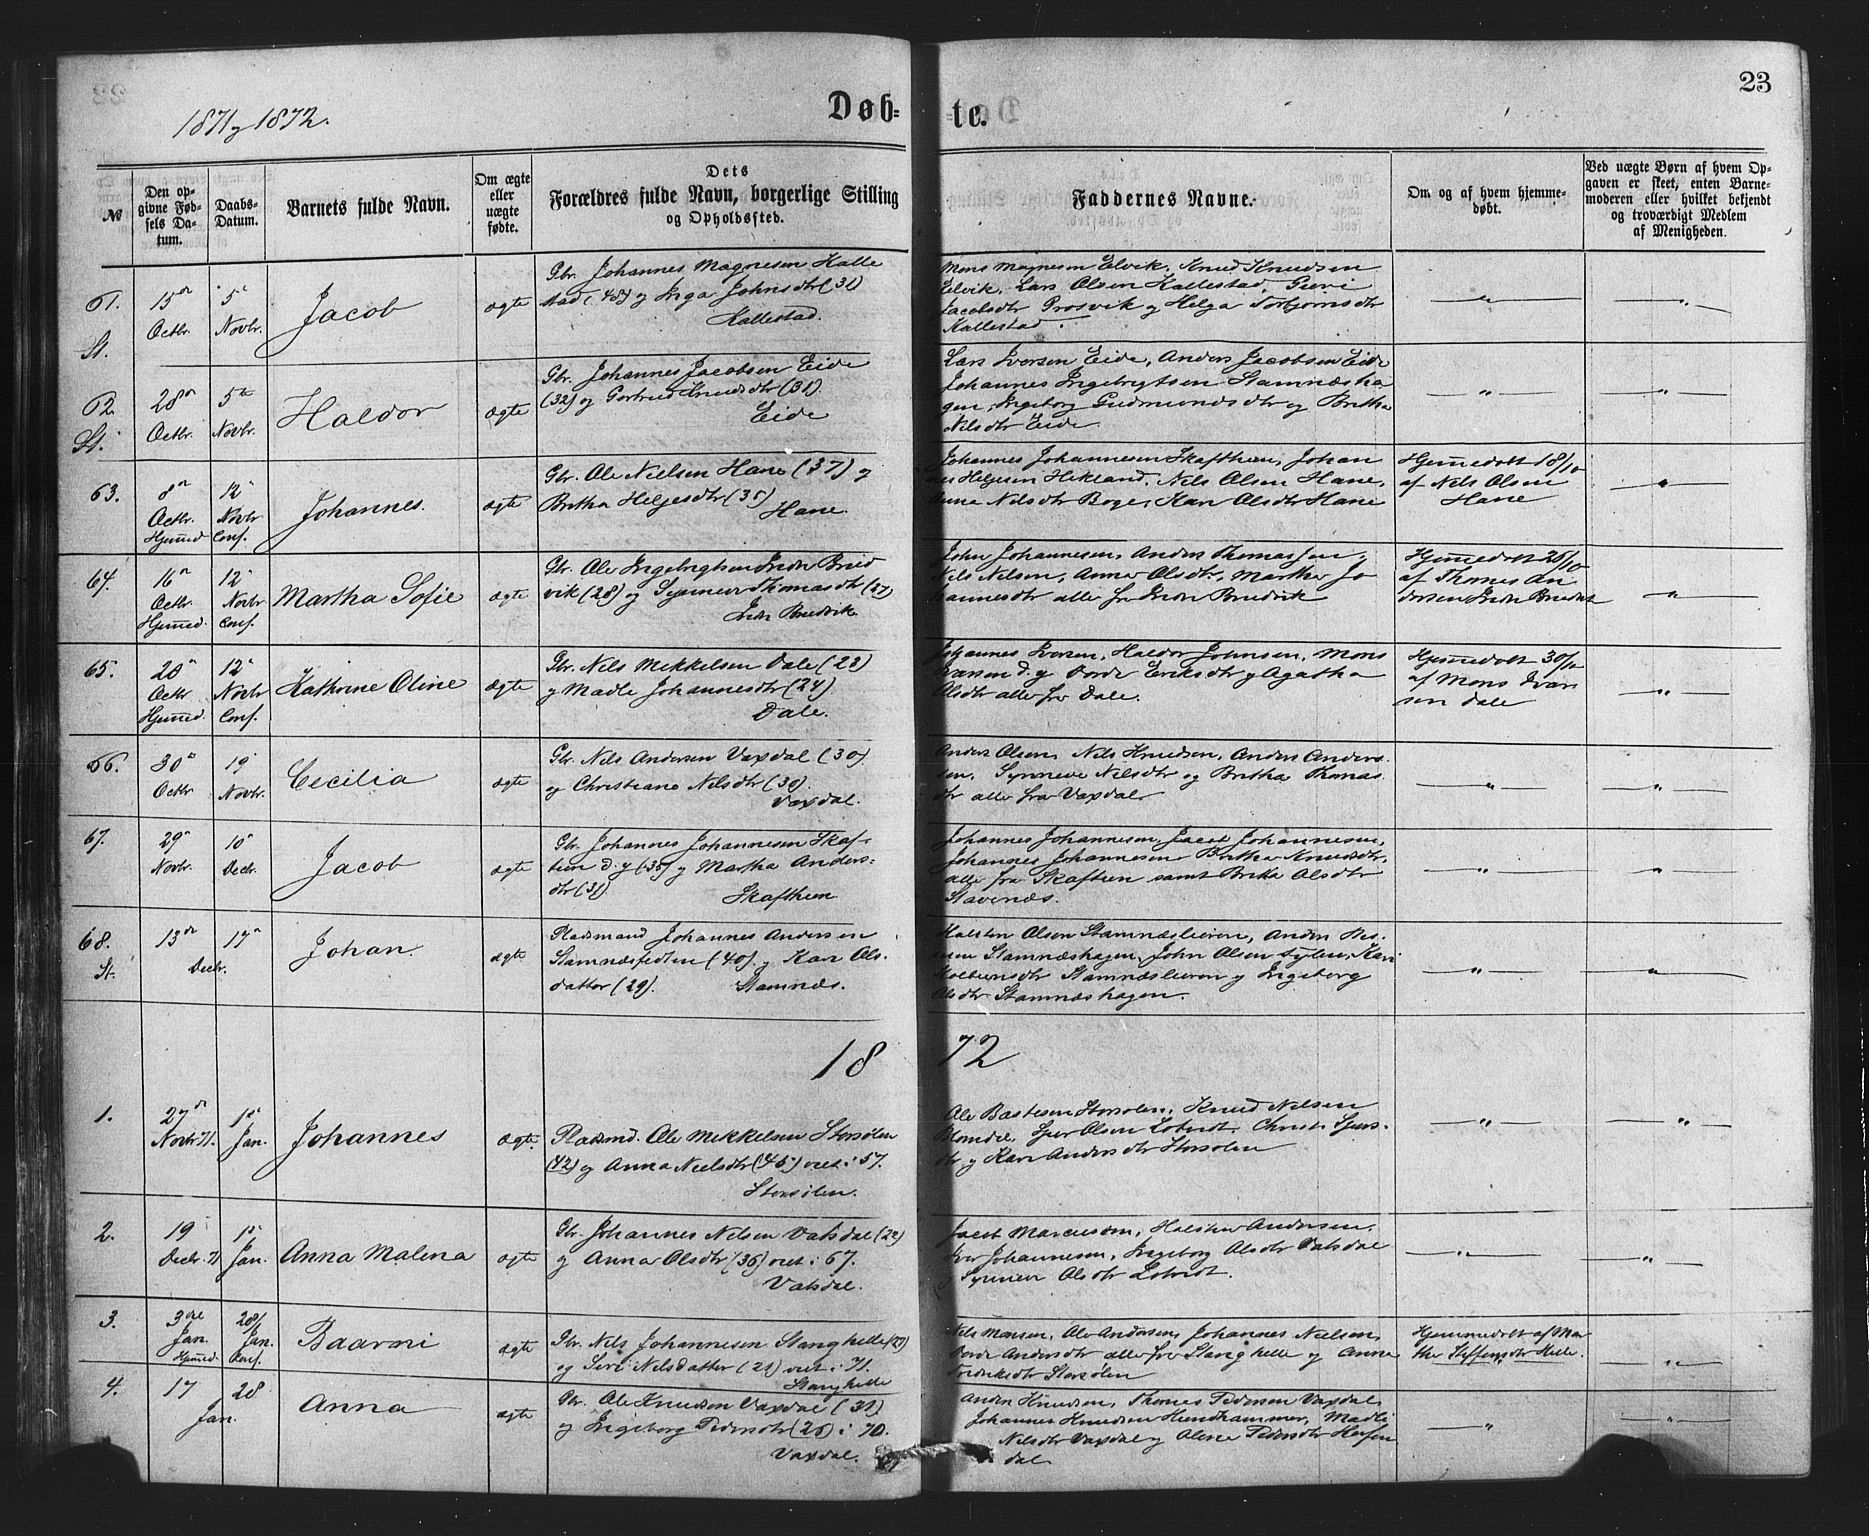 1871 og 1872.
Døb-
te.
23
№
Den op-
givne Fød-
sels Da-
tum.
Daabs-
Datum.
Barnets fulde Navn.
Om ægte
eller
uægte
fødte.
Dets
Forældres fulde Navn, borgerlige Stilling
og Opholdssted.
Faddernes Navne.
Om og af hvem hjemme-
døbt.
Ved uægte Børn af hvem Op-
gaven er skeet, enten Barne-
moderen eller hvilket bekjendt
og troværdigt Medlem
af Menigheden.
61.
St.
15de
Octbr.
5te
Novbr.
Jacob
ægte
Gbr. Johannes Magnesen Kalle
stad (48) og Inga Johnsdtr (31)
Kallestad.
Mons Magnesen Elvik, Knud Knudsen
Elvik, Lars Olsen Kallestad, Guri
Jacobsdtr Prosvik og Helga Torbjørnsdtr
Kallestad.
62.
St.
28de
Octbr.
5te
Novbr.
Haldor
ægte
Gbr. Johannes Jacobsen Eide
(32) og Gertrud Knudsdtr (31).
Eide
Lars Iversen Eide, Anders Jacobsen Eide
Johannes Ingebrigtsen Stamnæsha
gen, Ingeborg Gudmundsdtr og Britha
Nilsdtr Eide.
63.
8de
Octbr.
Hjemmed
12te
Novbr
Conf.
Johannes.
ægte
Gbr. Ole Nielsen Hane (37) og
Britha Helgesdtr (35)
Hane.
Johannes Johannesen Skaftheim, Johan
nes Helgesen Hekland, Nils Olsen Hane,
Anna Nilsdtr Boge, Kari Olsdtr Hane
Hjemmedøbt 18/10
af Nils Olsen
Hane
64.
16de
Octbr.
Hjemmed.
12te
Novbr
Conf.
Martha Sofie
ægte
Gbr. Ole Ingebrigtsen Indre Bred
vik (28) og Synneve Thomasdtr (27)
Indre Bredvik
John Johannesen, Anders Thomassen,
Nils Nilsen, Anna Olsdtr, Martha Jo
hannesdtr alle fra Indre Bredvik
Hjemmedøbt 26/10
af Thomas An
dersen Indre Bredvik
65.
20de
Octbr
Hjemmed.
12te
Novbr
Conf.
Kathrine Oline
ægte
Gbr. Nils Mikkelsen Dale (23)
og Madle Johannesdtr (24)
Dale.
Johannes Iversen, Haldor Johnsen, Mons
Ivarsen d. y Dorde Eriksdtr og Agatha
Olsdtr alle fra Dale.
Hjemmedøbt 30/10
af Mons Ivar
sen Dale
66.
30te
Octbr.
19de
Novbr.
Cecilia
ægte
Gbr. Nils Andersen Vaxdal (30)
og Christiane Nilsdtr (30).
Vaxdal.
Anders Olsen, Nils Knudsen, Anders Anders
sen, Synneve Nilsdtr og Britha Thomas
dtr alle fra Vaxdal.
67.
29de
Novbr.
10de
Decbr.
Jacob
ægte
Gbr. Johannes Johannesen Skaf-
teim d. y (35) og Martha Anders-
dtr (31)
Skaftheim
Johannes Johannesen, Jacob Johannesen,
Johannes Johannesen, Britha Knudsdtr,
alle fra Skafteim samt Britha Olsdtr
Stavenæs.
68.
St.
13de
17de
Decbr.
Johan.
ægte
Pladsmand Johannes Andersen
Stamnæsfedten (40) og Kari Ols-
datter (29).
Stamnæs.
Halsten Olsen Stamnæsleiren, Anders
Stamnæshagen, John Olsen Kari
Stamnæsleiren og Ingeborg
Olsdtr Stamnæshagen.
1872
1.
27de
Novbr 71.
1ste
Jan.
Johannes
ægte.
Pladsmd. Ole Mikkelsen Storsølen
(42) og Anna Nielsdtr (45) viet i 57.
Storsølen.
Ole Bastesen Storsølen, Knud Nilsen
Blomdal, Sjur Olsen Christi Sjurs-
dtr og Kari Andersdtr Storsølen
2.
19
Decbr. 71
1ste
Jan.
Anna Malena
ægte
Gbr. Johannes Nilsen Vatsdal (29)
og Anna Olsdtr (36) viet i 67.
Vatsdal.
Jacob Marcusen, Halsten Andersen,
Iver Johannesen, Ingeborg Olsdtr Vatsdal
og Synneve Olsdtr
3.
3die
Jan.
Hjemmed
28/
Jan.
Conf.
Baarni
ægte
Gbr. Nils Johannesen Stanghelle (29)
og Siri Nilsdatter (21) viet i 71.
Stanghelle
Nils Monsen, Ole Andersen, Johannes Nielsen,
Dorde Andersdtr alle fra Stanghelle og Anna
Fredriksdtr Storsølen
Hjemmedøbt af Mar
tha Steffensdtr Helle.
4.
17
28
Jan.
Anna
ægte
Gbr. Ole Knudsen Vaxdal (31)
og Ingeborg Pedersdtr (26) i 70.
Vaxdal.
Anders Knudsen, Thomas Pedersen Vaxdal,
Johannes Knudsen Hundhammer, Madli
Nilsdtr Vaxdal og Olena Pedersdtr Hesjen
dal.